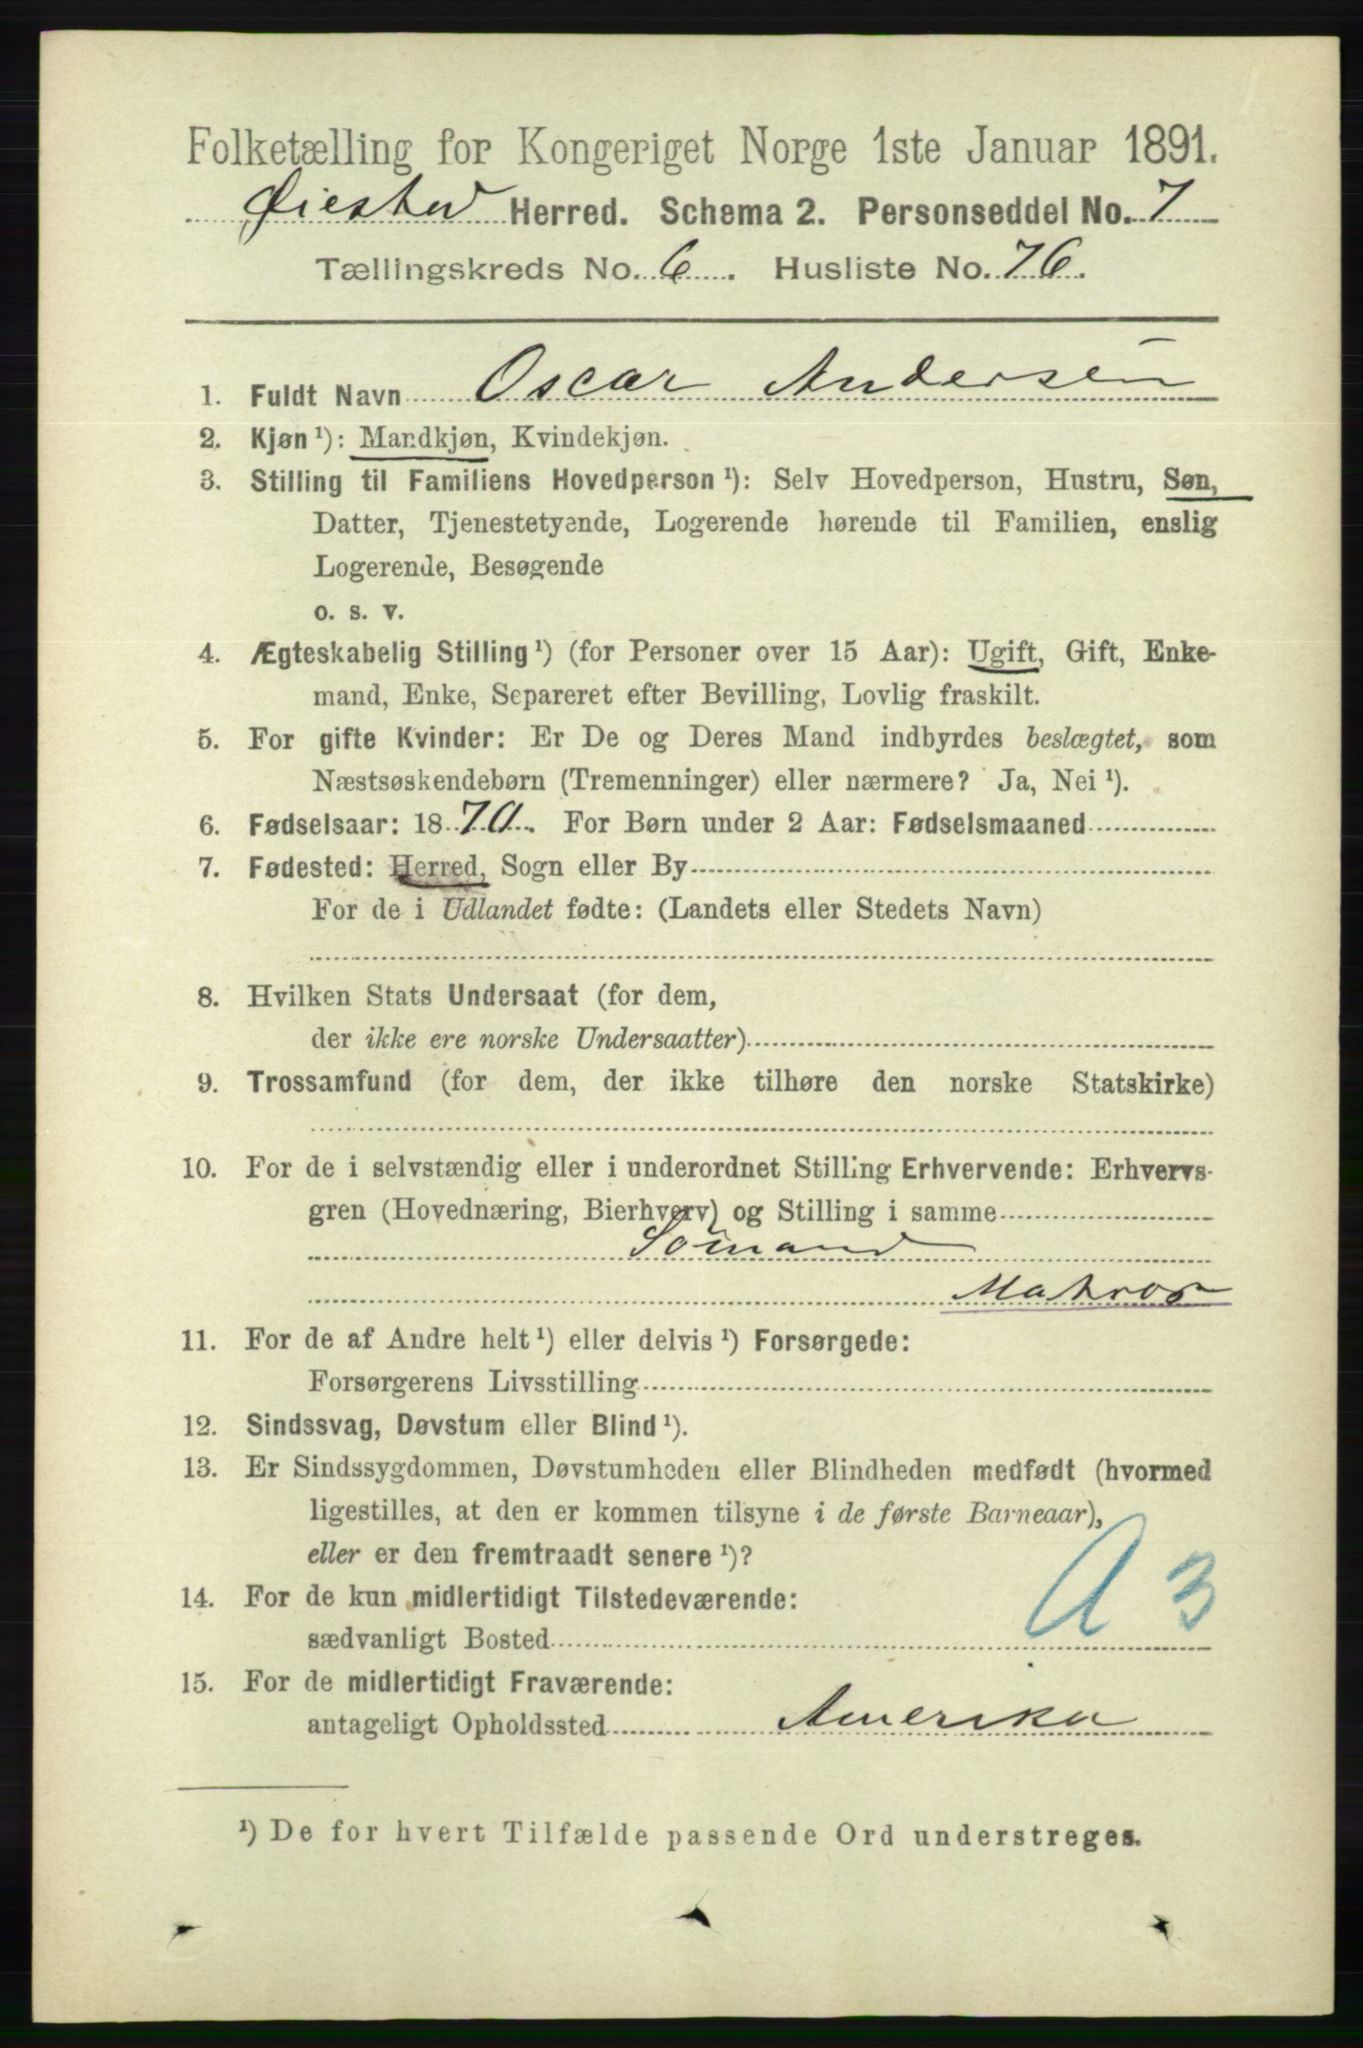 Folketælling for Kongeriget Norge 1ste Januar 1891.
Øiestad Herred. Schema 2. Personseddel No. 7
Tællingskreds No. 6. Husliste No. 76.
1. Fuldt Navn Oscar Andersen
2. Kjøn ¹): Mandkjøn, Kvindekjøn.
3. Stilling til Familiens Hovedperson ¹): Selv Hovedperson, Hustru, Søn,
Datter, Tjenestetyende, Logerende hørende til Familien, enslig
Logerende, Besøgende
o. s. v.
4. Ægteskabelig Stilling ¹) (for Personer over 15 Aar): Ugift, Gift, Enke-
mand, Enke, Separeret efter Bevilling, Lovlig fraskilt.
5. For gifte Kvinder: Er De og Deres Mand indbyrdes beslægtet, som
Næstsøskendebørn (Tremenninger) eller nærmere? Ja, Nei ¹).
6. Fødselsaar: 1870. For Børn under 2 Aar: Fødselsmaaned
7. Fødested: Herred, Sogn eller By
For de i Udlandet fødte: (Landets eller Stedets Navn)
8. Hvilken Stats Undersaat (for dem,
der ikke ere norske Undersaatter)
9. Trossamfund (for dem, der ikke tilhøre den norske Statskirke)
10. For de i selvstændig eller i underordnet Stilling Erhvervende: Erhvervs-
gren (Hovednæring, Bierhverv) og Stilling i samme
Sømand
Matros
11. For de af Andre helt ¹) eller delvis ¹) Forsørgede:
Forsørgerens Livsstilling
12. Sindssvag, Døvstum eller Blind ¹).
13. Er Sindssygdommen, Døvstumheden eller Blindheden medfødt (hvormed
ligestilles, at den er kommen tilsyne i de første Barneaar),
eller er den fremtraadt senere ¹)?
A 3
14. For de kun midlertidigt Tilstedeværende:
sædvanligt Bosted
15. For de midlertidigt Fraværende:
antageligt Opholdssted Amerika
¹) De for hvert Tilfælde passende Ord understreges.